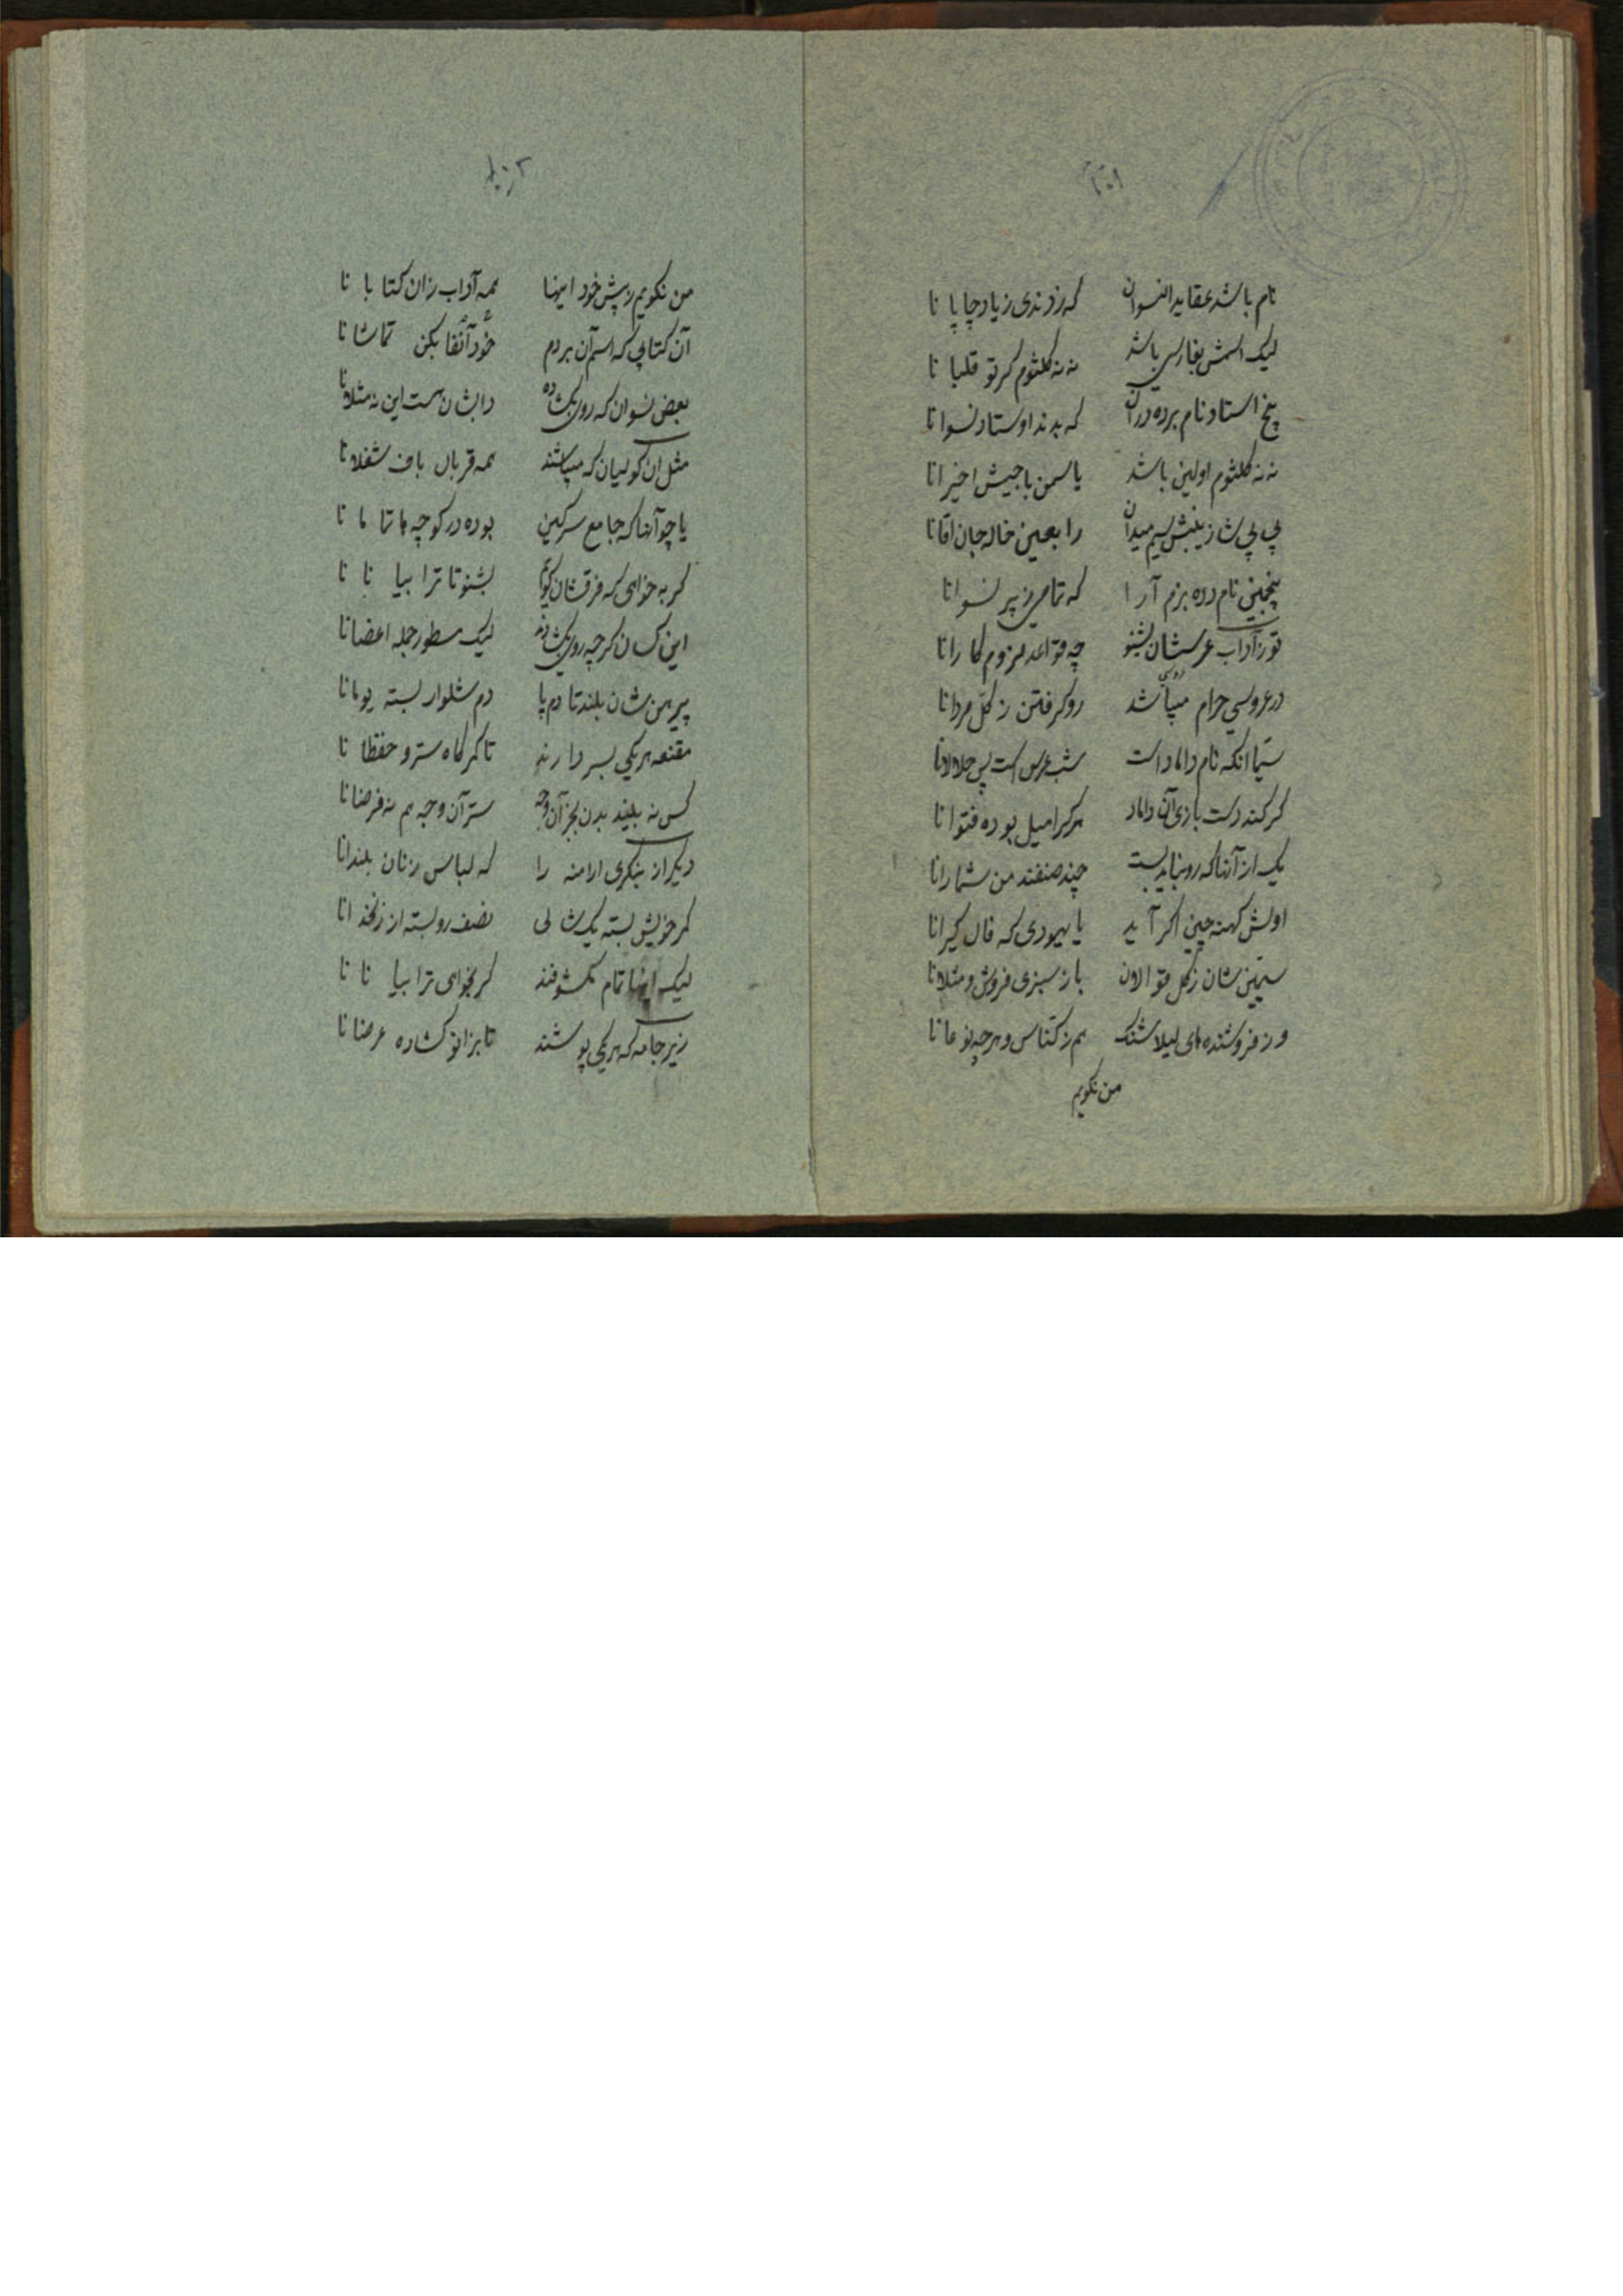 ۱۰۱
نام باشد عقاید النسوان که زدندی زیاد چاپا نا
لیک اسمش بفارسی باشد ننه کلثوم کر تو قلبا نا
پنج استاد نام برده در آن که بدند اوستاد نسوانا
ننه کلثوم اولین باشد یاسمن باجیش اخیرانا
بی بی شاه زینبش سیم میدان رابعین خاله جان اقانا
پنجمین نام دده بزم آرا که تمامی ز پیر نسوانا
تو ز آداب عرسشان بشنو چه قواعد لزوم کارانا
در عروسی حرام میباشد رو کرفتن ز کل مردانا
سیما انکه نام داماد است شب عرس است پس حلالانا
کر کند دست بازی آن داماد هر کرا میل بوده فتوانا
یک از آنها که رو نباید بست چند صنفند من شمارانا
اولش کهنه چین اکر آید یا یهودی که فال کیرانا
سیمین شان ز کل قوالان باز سبزی فروش و مثلانا
و ز فروشنده های لیلاشنک هم ز کناس و هر چه نوعانا
من نکویم
۱۰۲
من نکویم ز پیش خود اینها همه آداب زان کتابا نا
آن کتابی که اسم آن بردم خود آنفا بکن تماشانا
بعض نسوان که روی بکشاده دابشان هست این نه مثلانا
مثل ان کولیان که میباشند همه قربال باف شغلانا
یا چو آنها که جامع سرکین بوده در کوچه هاتاما نا
کر به خواهی که فرقشان کویم بشنو تا ترا بیا نا نا
این کسان کر چه روی بکشادند لیک مسطور جمله اعضانا
پیرهن شان بلند تا دم پا دم شلوار بسته یومانا
مقنعه هر یکی بسر دارند تا کمر کاه ستر و حفظا نا
کس نه بیند بدن بجز آن وجه ستر آن وجه هم نه فرضانا
دیکر از بنکری ارامنه را که لباس زنان بلندانا
کمر خویش بسته یک شالی نصف رو بسته از زنخدانا
لیک اینها تمام مکشوفند کر بخواهی ترا بیا نا نا
زیر جامه که هر یکی پوشند تا بزانو کشاده عرضانا